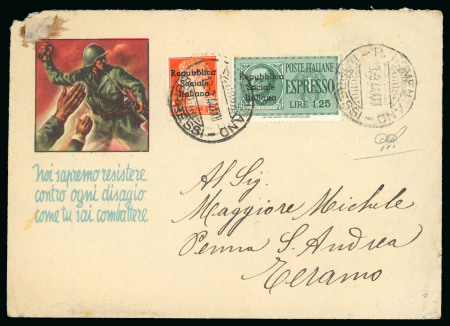 Noi sapremo resistere
contro ogni disagio
come tu sai combattere
Repubblica
Sociale
Italiana
POSTE ITALIANE
Repubblica
Sociale
Italiana
ESPRESSO
LIRE 1.25
Al Sig.
Maggiore Michele
Penna S. Andrea
Teramo